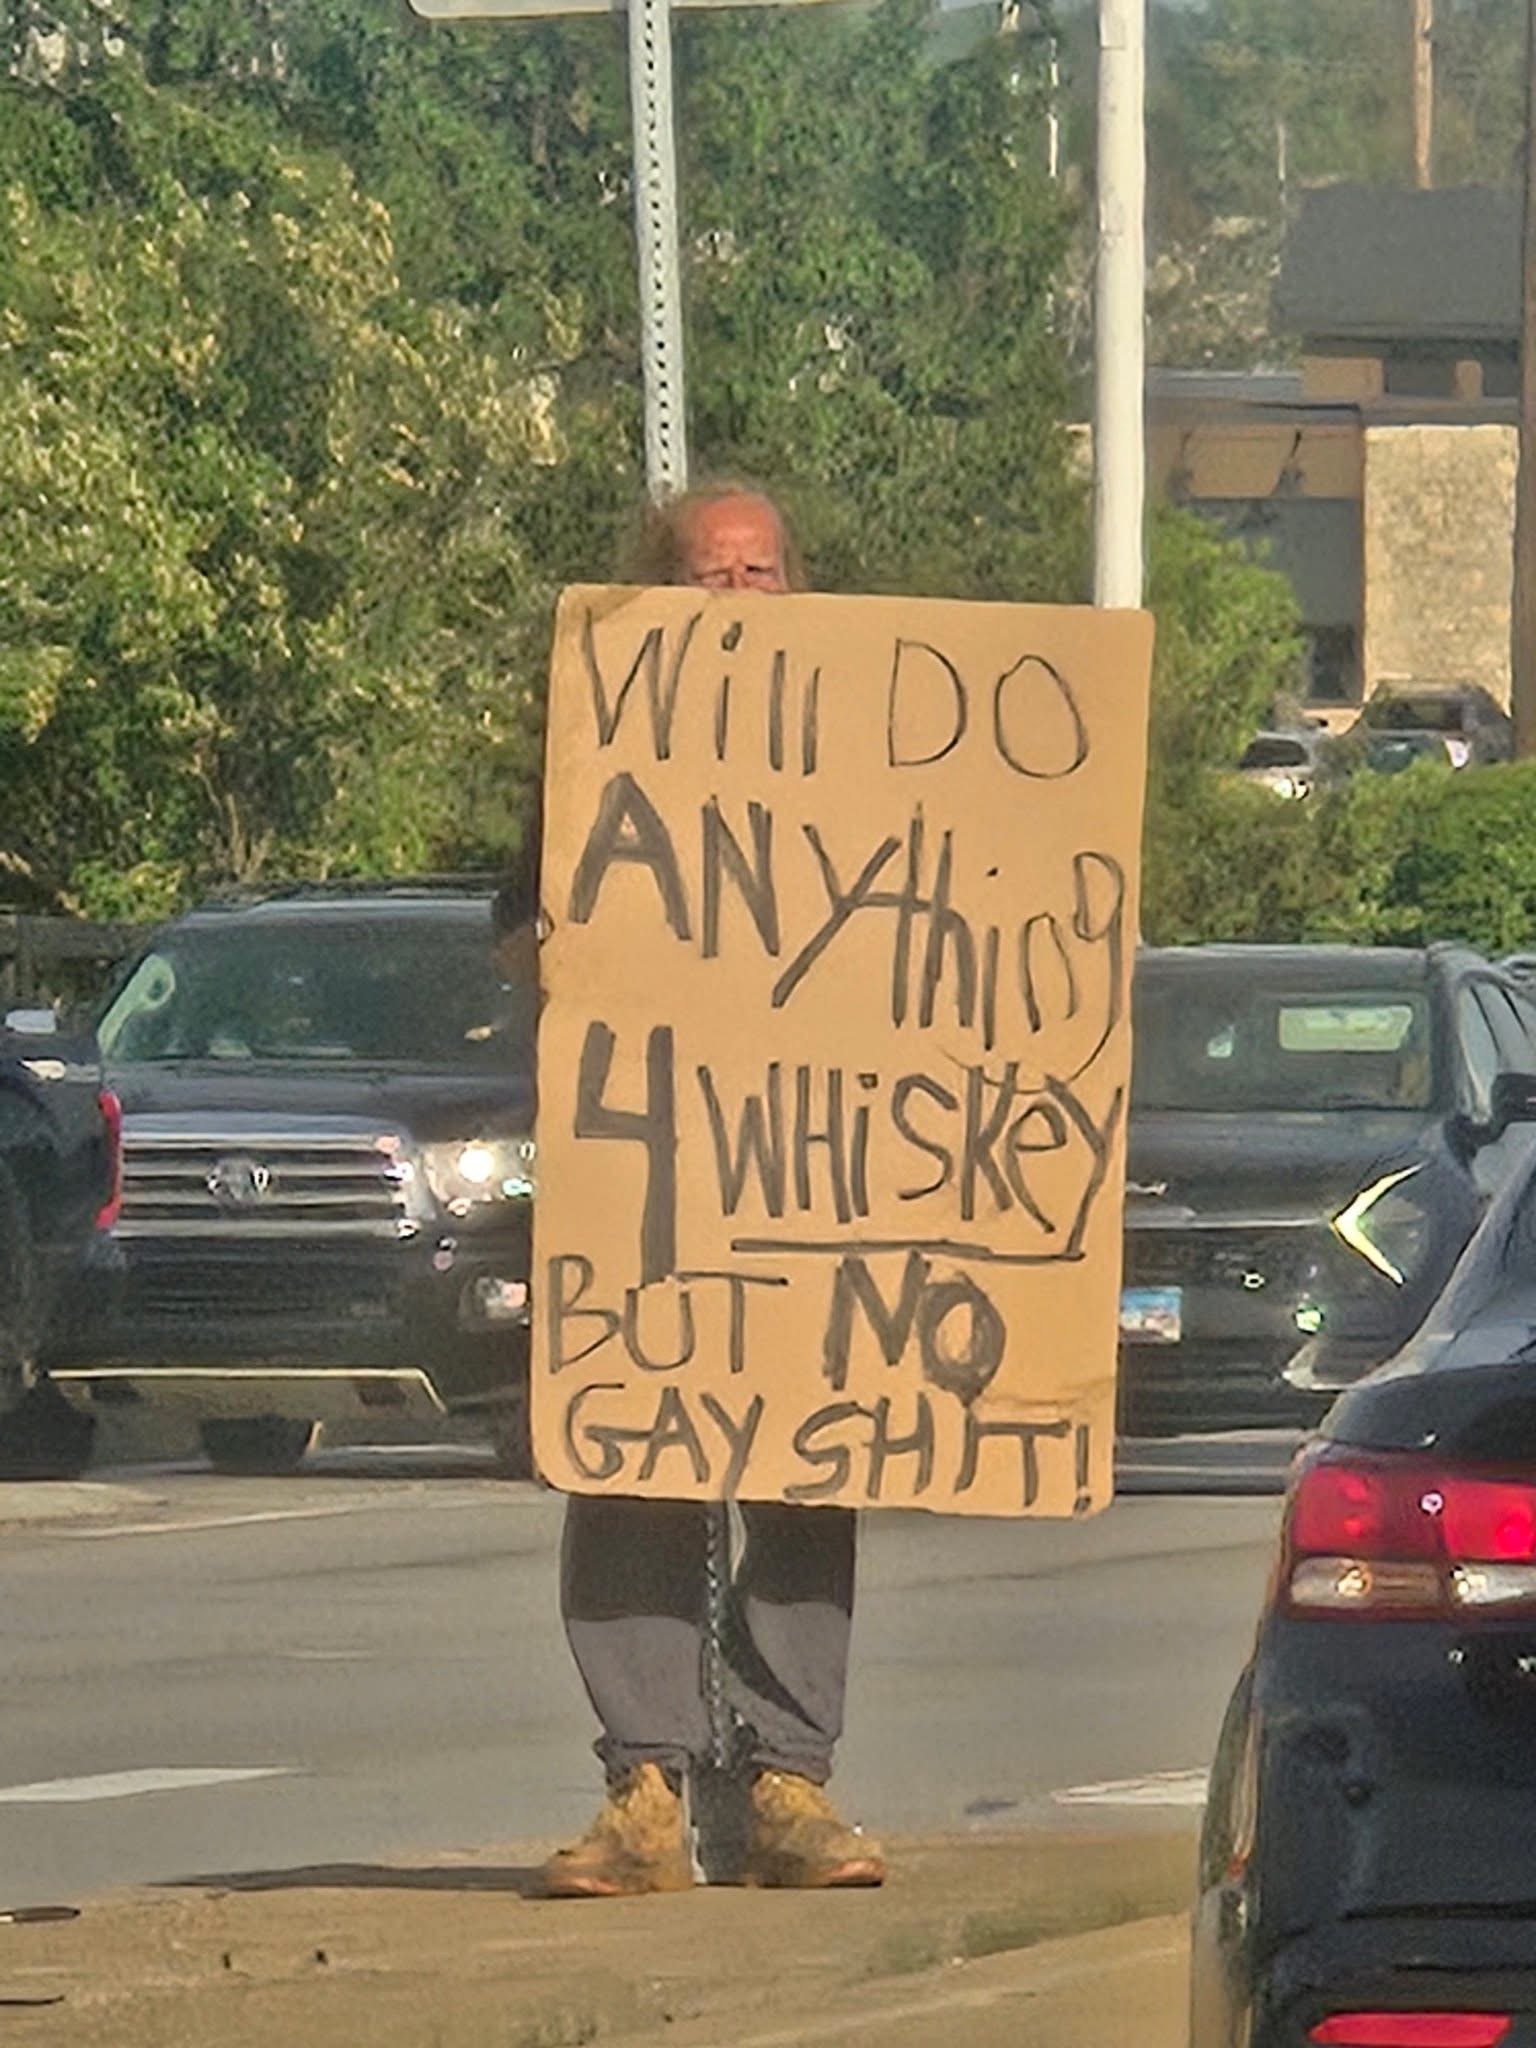 Will DO
ANything
4 WHiSKey
BUT NO
GAY SHIT!